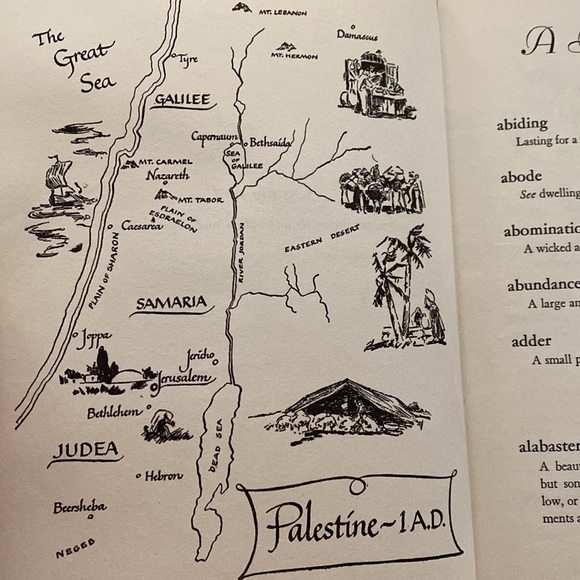 The
Great
Sea
MT. LEBANON
Damascus
MT. HERMON
Tyre
GALILEE
Capernaum
Bethsaida
SEA
OF
GALILEE
MT. CARMEL
Nazareth
MT. TABOR
PLAIN OF
ESDRAELON
Caesarea
PLAIN OF SHARON
RIVER JORDAN
EASTERN DESERT
SAMARIA
Joppa
Jericho
Jerusalem
Bethlehem
DEAD SEA
JUDEA
Hebron
Beersheba
NEGEB
Palestine~1 A.D.
A
abiding
Lasting for a
abode
See dwelling
abominatio
A wicked a
abundance
A large an
adder
A small p
alabaster
A beau
but son
low, or
ments a